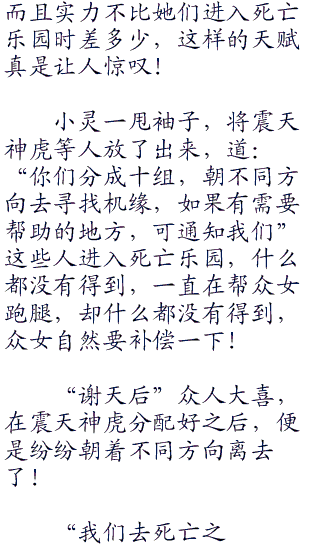 而且实力不比她们进入死亡
乐园时差多少，这样的天赋
真是让人惊叹！
小灵一甩袖子，将震天
神虎等人放了出来，道：
“你们分成十组，朝不同方
向去寻找机缘，如果有需要
帮助的地方，可通知我们”
这些人进入死亡乐园，什么
都没有得到，一直在帮众女
跑腿，却什么都没有得到，
众女自然要补偿一下！
“谢天后”众人大喜，
在震天神虎分配好之后，便
是纷纷朝着不同方向离去
了！
“我们去死亡之